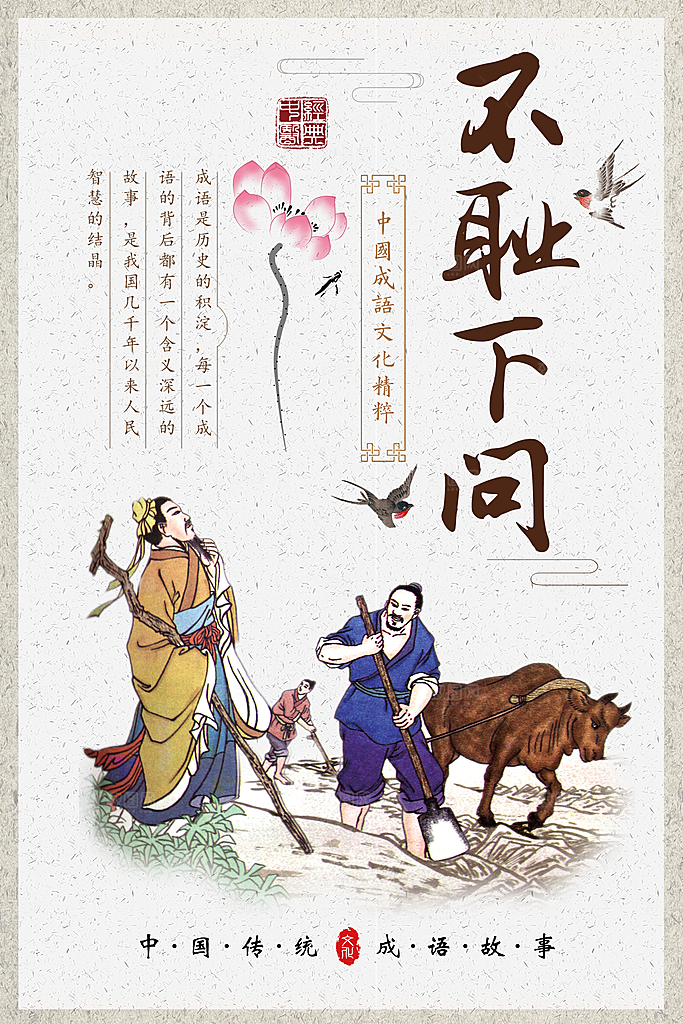 不耻下问
中國成語文化精粹
經典
中國
成语是历史的积淀，每一个成
语的背后都有一个含义深远的
故事，是我国几千年以来人民
智慧的结晶。
中·国·传·统
文化
成·语·故·事